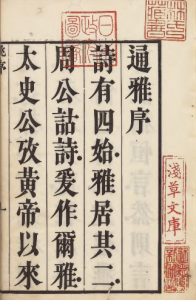 通雅序
詩有四始雅居其二
周公詁詩爰作爾雅
太史公攷黄帝以來
淺草文庫